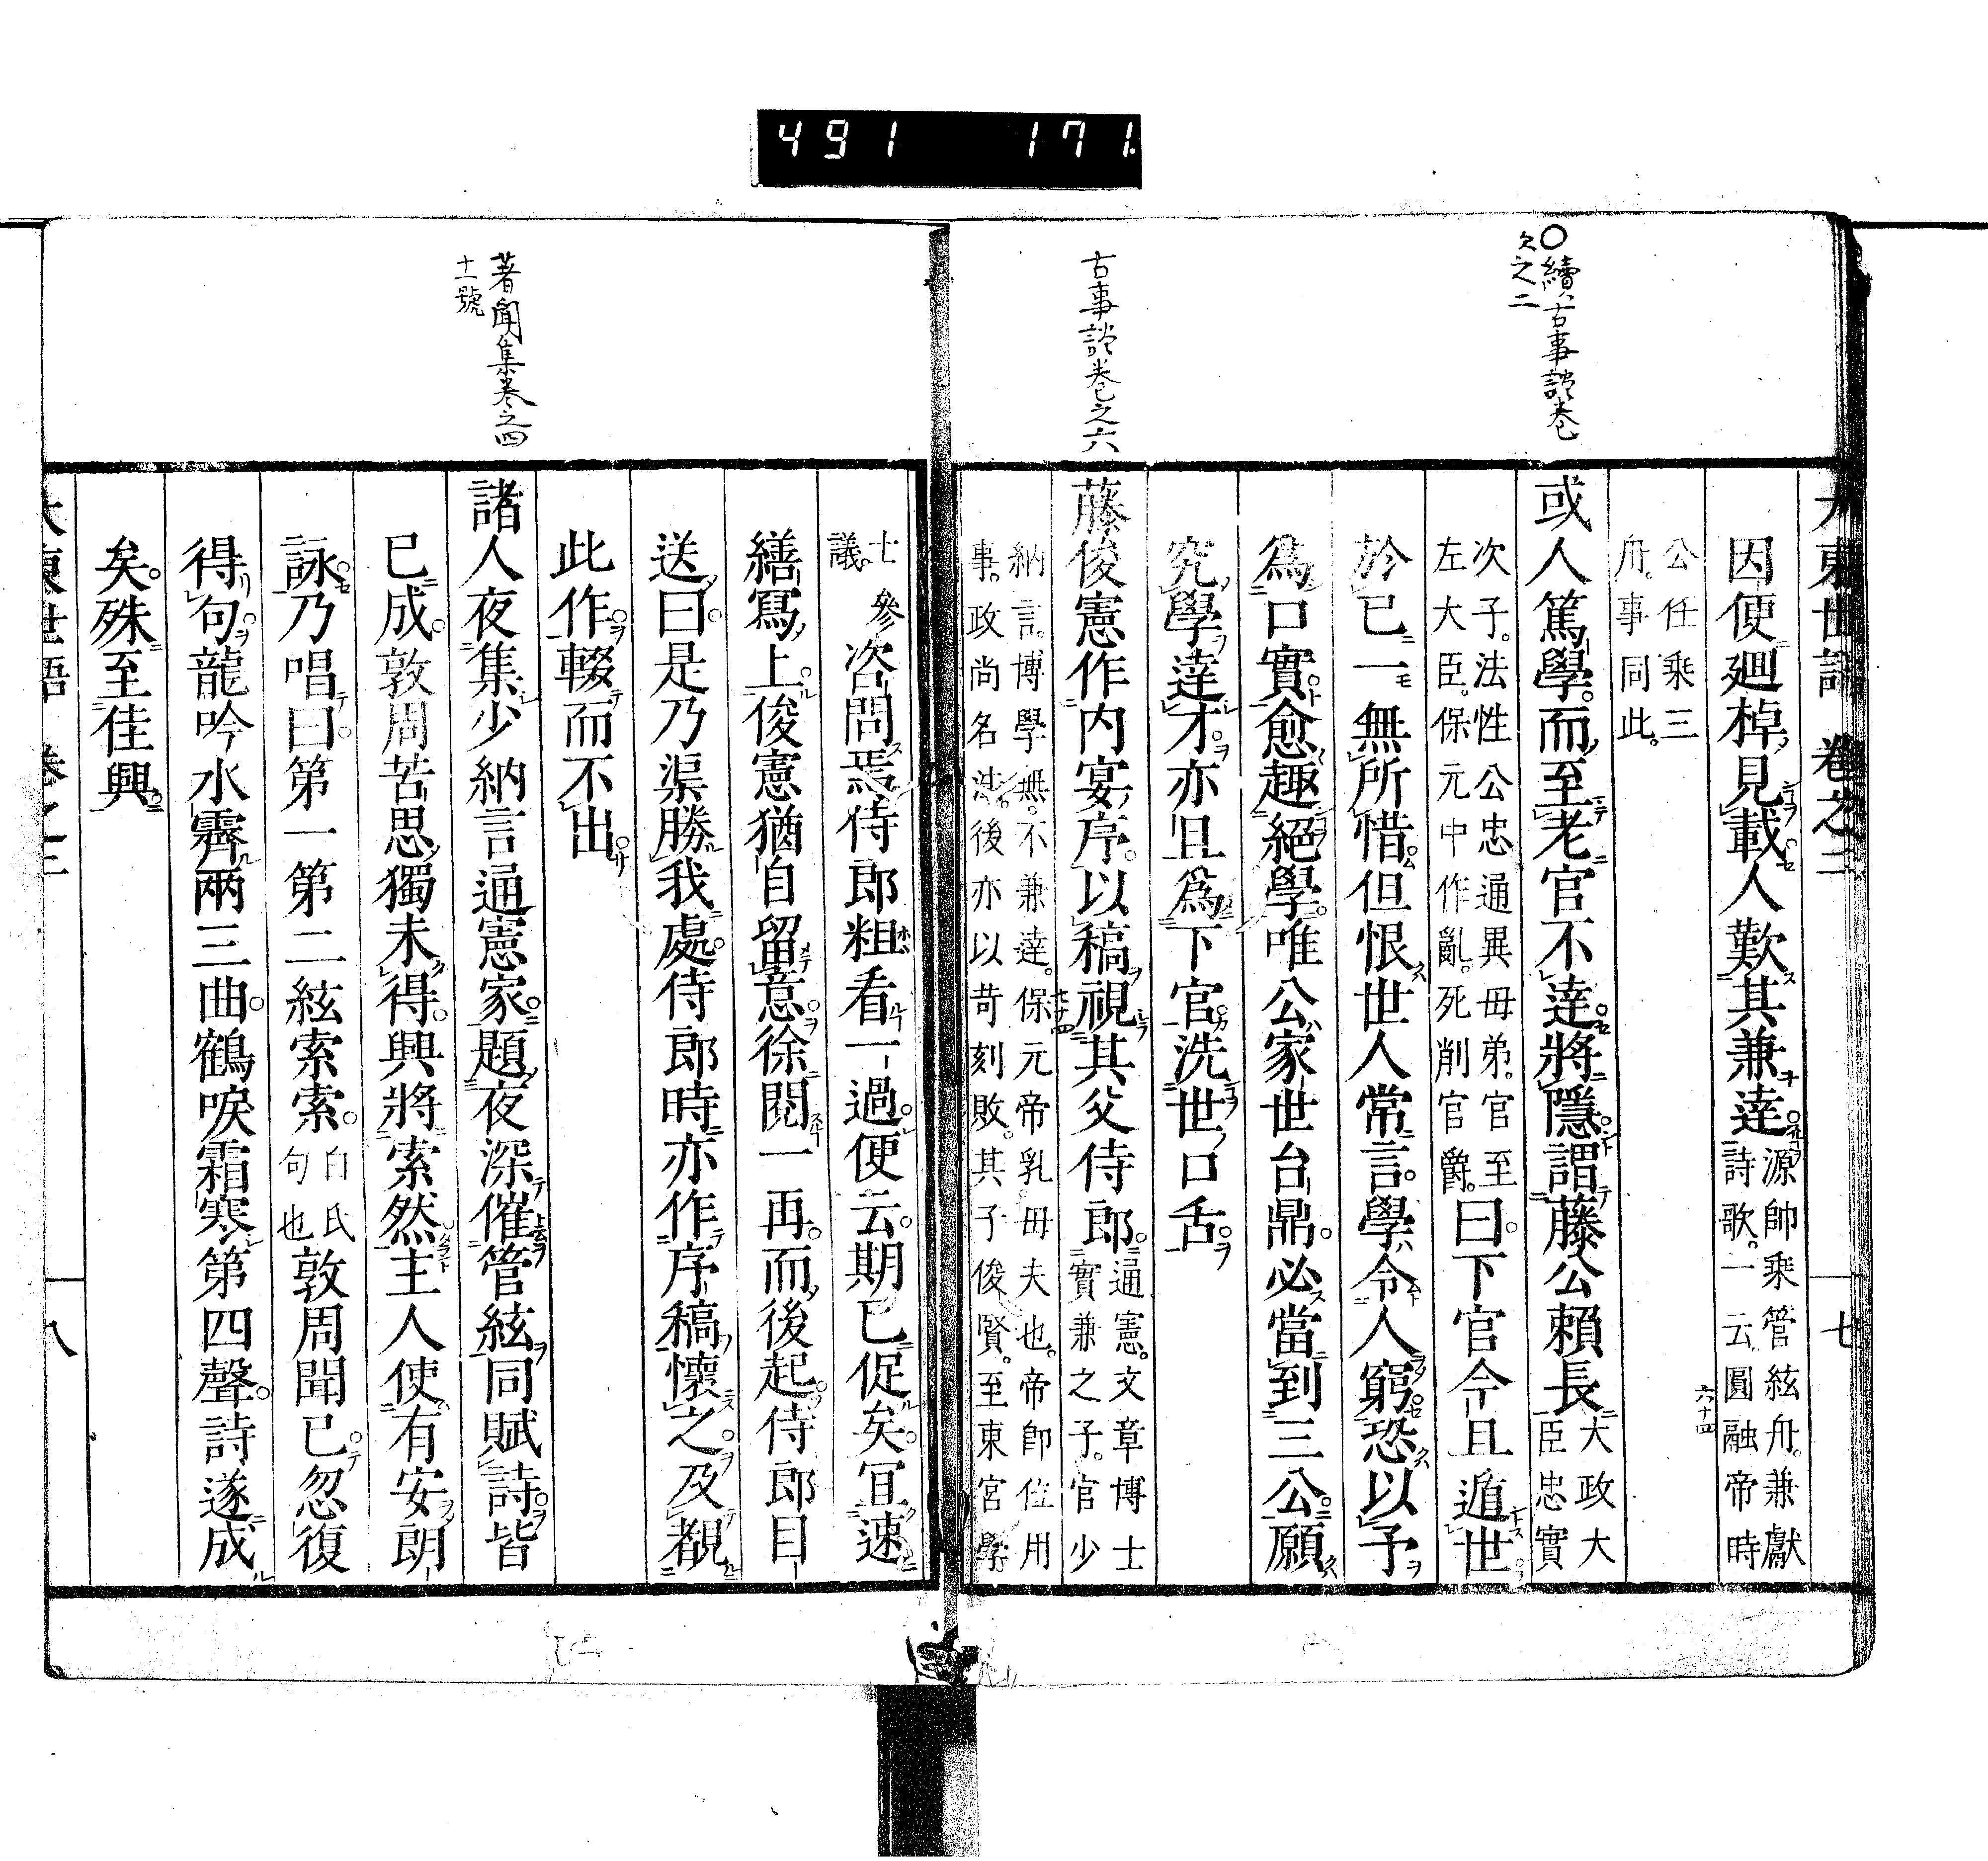 491 171
○續古事談卷
欠之二
古事談卷之六
著聞集卷之四
十一號
大東世語 卷之二 七
因便廻棹見載人歎其兼達源帥乘管絃舟兼獻
詩歌一云圓融帝時
六十四
公任乘三
舟事同此
或人篤學而至老官不達將隱謂藤公賴長大政大
臣忠實
次子法性公忠通異母弟官至
左大臣保元中作亂死削官爵曰下官今且遁世
於已一無所惜但恨世人常言學令人窮恐以予
為口實愈趣絕學唯公家世台鼎必當到三公願
究學達才亦且爲下官洗世口舌
藤俊憲作内宴序以稿視其父侍郎通憲文章博士
實兼之子官少
納言博學無不兼達保元帝乳母夫也帝卽位用
事政尚名法後亦以苛刻敗其子俊賢至東宮學
士參
議
咨問焉侍郎粗看一過便云期已促矣宜速
繕寫上俊憲猶自留意徐閱一再而後起侍郎目
送曰是乃渠勝我處侍郎時亦作序稿懷之及覩
此作輟而不出
諸人夜集少納言通憲家題夜深催管絃同賦詩皆
已成敦周苦思獨未得興將索然主人使有安朗
詠乃唱曰第一第二絃索索白氏
句也敦周聞已忽復
得句龍吟水霽兩三曲鶴唳霜寒第四聲詩遂成
矣殊至佳興
大東世語 卷之二 八